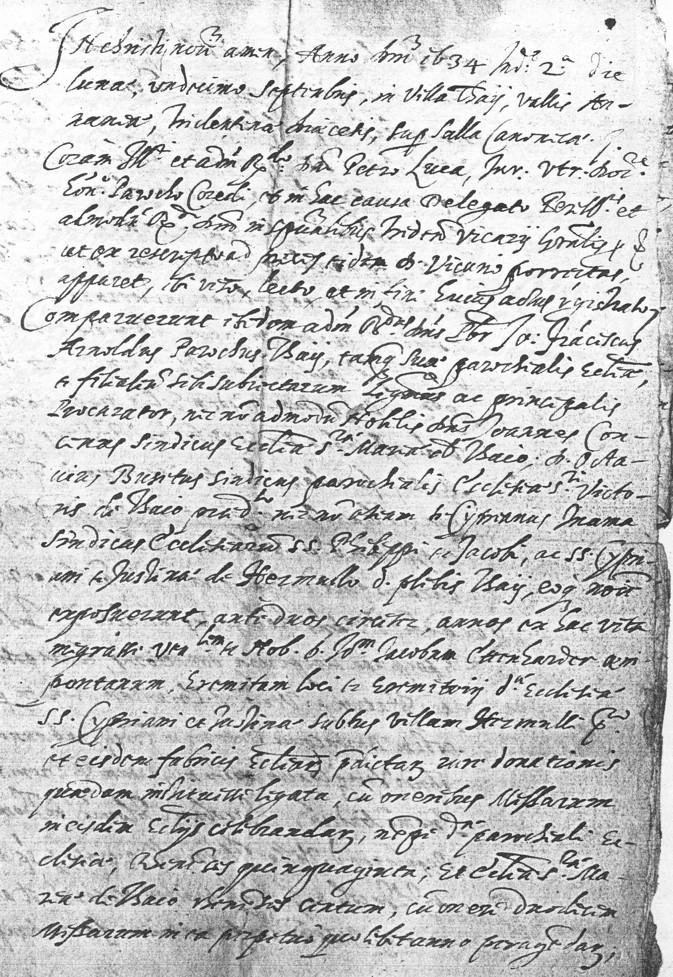 In Christi nom.e amen, Anno Dni 1634 Ind.e 2.a die
lunae, undecimo Septembris, in Villa Thaij, vallis An-
naniae, Tridentinae diocesis, sup. salla Canonicae.
Coram Ill. et adm. R.do Dno Petro Luca, Jur. Utr. Doc.re
Parocho Coredi, et in hac causa Delegato Per Ill. et
admodum R. Dno in spualibus Tridenti Vicarij Gnalis
ut ex rescripto ad preces eidem D. Vicario porrectas
apparet, ibi viso, lecto, et in fine huius actus registrato,
Comparuerunt ibidem adm. R.dus Dnus Pbr Jo. Franciscus
Arnoldus Parochus Thaij, tamq. suae parochialis Ecliae,
et filialium sibi subiectarum ac principalis
Procurator, nec non admodum Nobilis Dnus Joannes Con-
cinus Sindicus Ecclia S. Mariae de Thaio, D. Octa-
vius Busetus Sindicus parochialis Ecclesiae S. Victo-
ris de Thaio pred. nec non etiam D. Cyprianus Inama
Sindicus Ecclesiarum SS. Philippi et Jacobi, ac SS. Cypri-
ani et Justinae de Hermullo d. plebis Thaij, eoq. noie
exposuerunt, ante duos circiter annos ex hac vita
migrasse Ven. et Nob. D. Jacobum
Eremitam loci et Eremitorij d. Ecclesiae
SS. Cypriani et Justinae subtus villam Hermulli
et eisdem fabricis Ecliarum pdictarum iure donationis
quaedam instituisse legata, cum oneribus Missarum
in eisdem Eclijs celebrandarum, nempe d. parochiali Ec-
clesiae, Ranenses quinquaginta, et Ecclesiae S. Ma-
riae de Thaio Ranenses centum, cum onere duodecim
Missarum in ea perpetuo quolibet anno peragendarum,